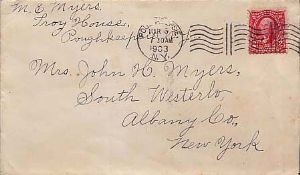 M. E. Myers.
Troy House,
Poughkeepsie
1933
N.Y.
Mrs. John H. Myers,
South Westerlo,
Albany Co,
New York